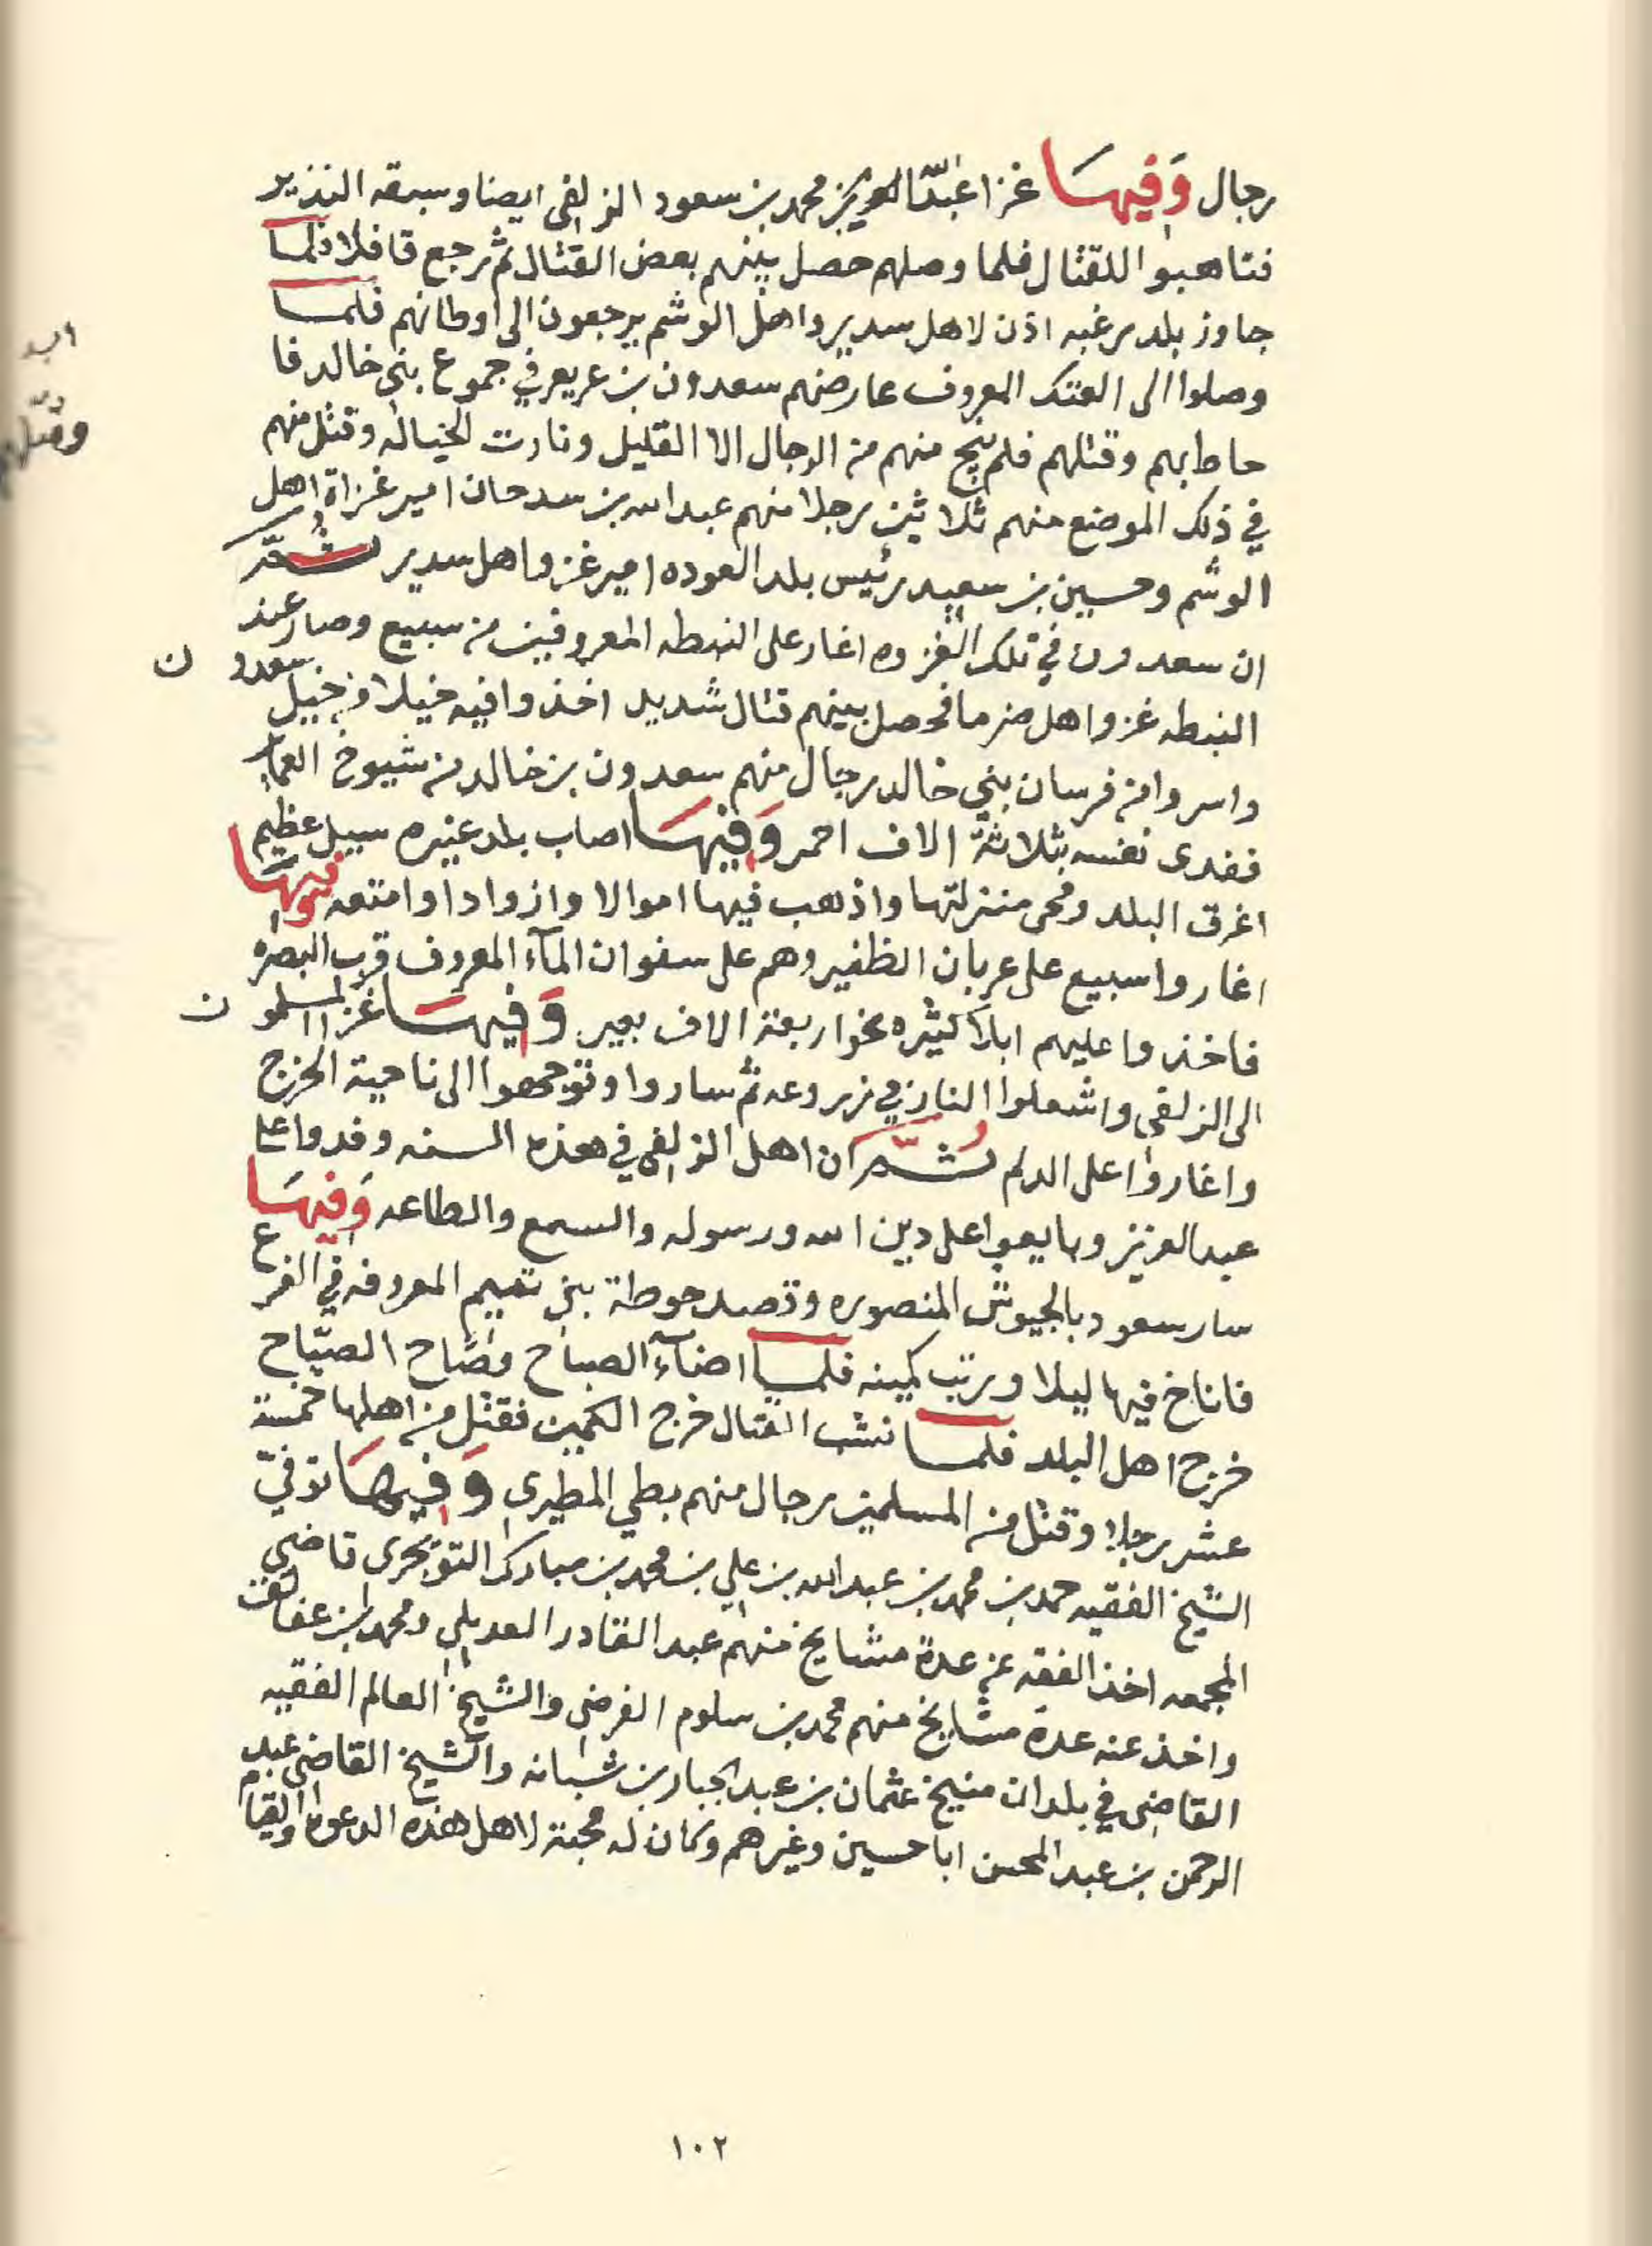 رجال وَفيهَا غزا عَبدُ العزيز بن محمد بن سعود الزلفى ايضا وسبقه النذير
فتاهبوا للقتال فلما وصلهم حصل بينهم بعض القتال ثم رجع قافلا فلما
جاوز بلد رغبه اذن لاهل سدير واهل الوشم يرجعون الى اوطانهم فلما
وصلوا الى العتك المعروف عارضهم سعدون بن عريعر في جموع بني خالد فا
حاط بهم وقتلهم فلم ينج منهم من الرجال الا القليل ونارت الخياله وقتل منهم
في ذلك الموضع منهم ثلاثين رجلا منهم عبد الله بن سدحان امير غزاة اهل
الوشم وحسين بن سعيد رئيس بلد العوده امير غزو اهل سدير ثُمّ
ان سعدون في تلك الغزوه اغار على النبطه المعروفين من سبيع وصار عند
النبطه غزو اهل ضرما فحصل بينهم قتال شديد اخذوا فيه خيلا من خيل سعدون
واسروا من فرسان بني خالد رجال منهم سعدون بن خالد من شيوخ العماير
ففدى نفسه بثلاثة الاف احمر وَفيهَا اصاب بلد عنيزه سيل عظيم
اغرق البلد ومحى منزلتها واذهب فيها اموالا وازوادا وامتعه وَفيهَا
اغاروا سبيع على عربان الظفير وهم على سفوان المآء المعروف قرب البصره
فاخذوا عليهم ابلا كثيره نحو اربعة الاف بعير وَفيهَا غزا المسلمون
الى الزلفى واشعلوا النار في زروعه ثم ساروا وتوجهوا الى ناحية الخرج
واغاروا على الدلم ثُمّ ان اهل الزلفى في هذه السنه وفدوا على
عبد العزيز وبايعوا على دين الله ورسوله والسمع والطاعه وَفيهَا
سار سعود بالجيوش المنصوره وقصد حوطة بني تميم المعروفه في الفرع
فاناخ فيها ليلا ورتب كمينه فلما اضآء الصباح وصاح الصيّاح
خرج اهل البلد فلما نشب القتال خرج الكمين فقتل من اهلها خمسة
عشر رجلا وقتل من المسلمين رجال منهم بطي المطيرى وَفيهَا توفيّ
الشيخ الفقيه حمد بن محمد بن عبد الله بن علي بن محمد بن مبارك التويجرى قاضي
المجمعه اخذ الفقه عن عدة مشايخ منهم عبد القادر العديلي ومحمد بن عفالق
واخذ عنه عدة مشايخ منهم محمد بن سلوم الفرضى والشيخ العالم الفقيه
القاضى في بلدان منيخ عثمان بن عبد الجبار بن شبانه والشيخ القاضى عبد
الرحمن بن عبد المحسن ابا حسين وغيرهم وكان له محبة لاهل هذه الدعوه والقيام
١٠٢